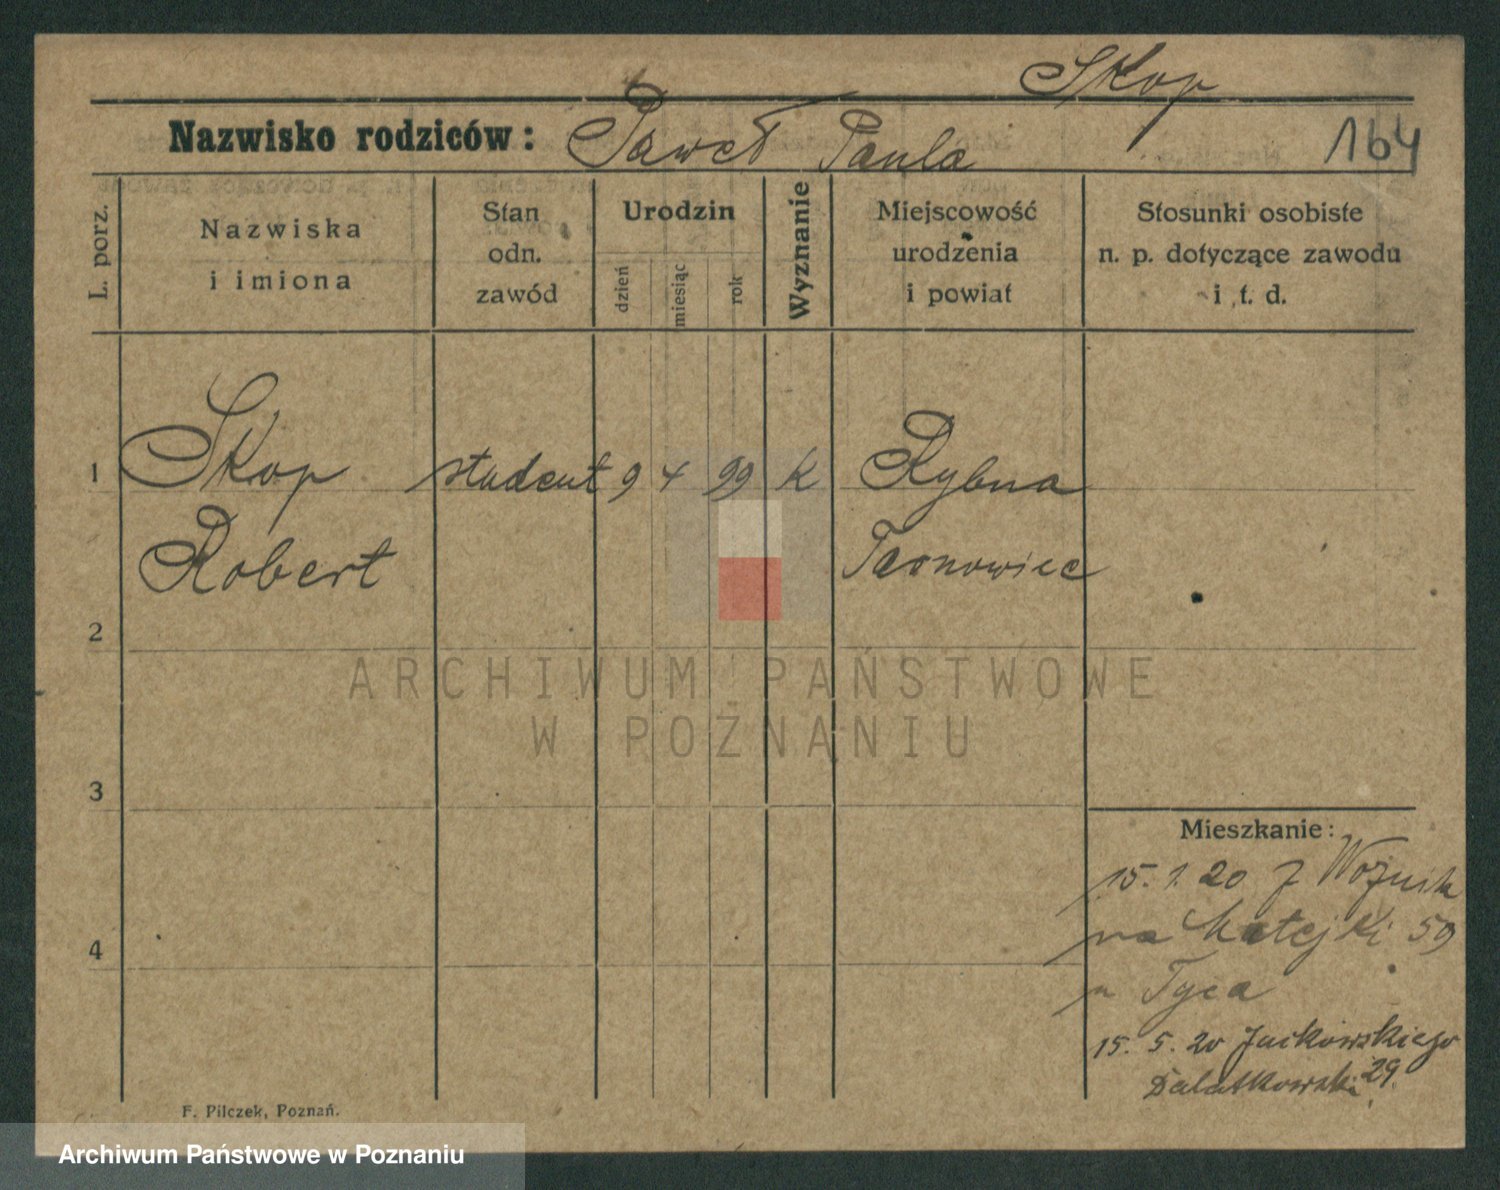 Skop
Nazwisko rodziców: Paweł Paula
164
L. porz.
Nazwiska
i imiona
Stan
odn.
zawód
Urodzin
dzień
miesiąc
rok
Wyznanie
Miejscowość
urodzenia
i powiat
Stosunki osobiste
n. p. dotyczące zawodu
i t. d.
1
Skop
student
9
4
99
k
Rybna
Robert
Tarnowiec
2
3
4
Mieszkanie:
15. 1. 20 z Woźnik
na Matejki 59
u Tyca
15. 5. 20 Jackowskiego
29.
F. Pilczek, Poznań.
ARCHIWUM PAŃSTWOWE
W POZNANIU
Archiwum Państwowe w Poznaniu